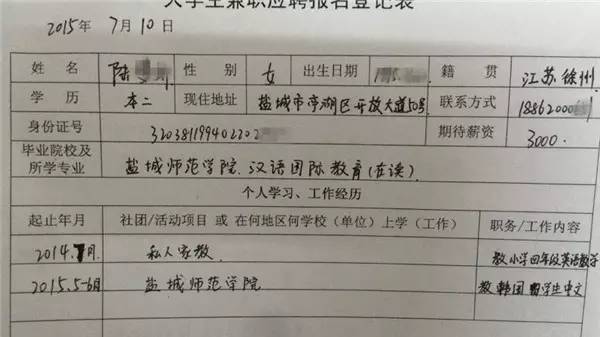 大学生兼职应聘报名登记表
2015年7月10日
姓 名 陆 性 别 女 出生日期 籍 贯 江苏徐州
学 历 本二 现住地址 盐城市亭湖区开放大道50号 联系方式 188620000
身份证号 320381199402202 期待薪资 3000.
毕业院校及所学专业 盐城师范学院.汉语国际教育(在读).
个人学习、工作经历
起止年月 社团/活动项目 或 在何地区何学校(单位)上学(工作) 职务/工作内容
2014. 月 私人家教 教小学四年级英语数学
2015.5-6月 盐城师范学院 教韩国留学生中文